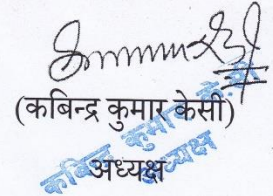 (कबिन्द्र कुमार केसी)
अध्यक्ष
कबिन्द्र कुमार के.सी
अध्यक्ष